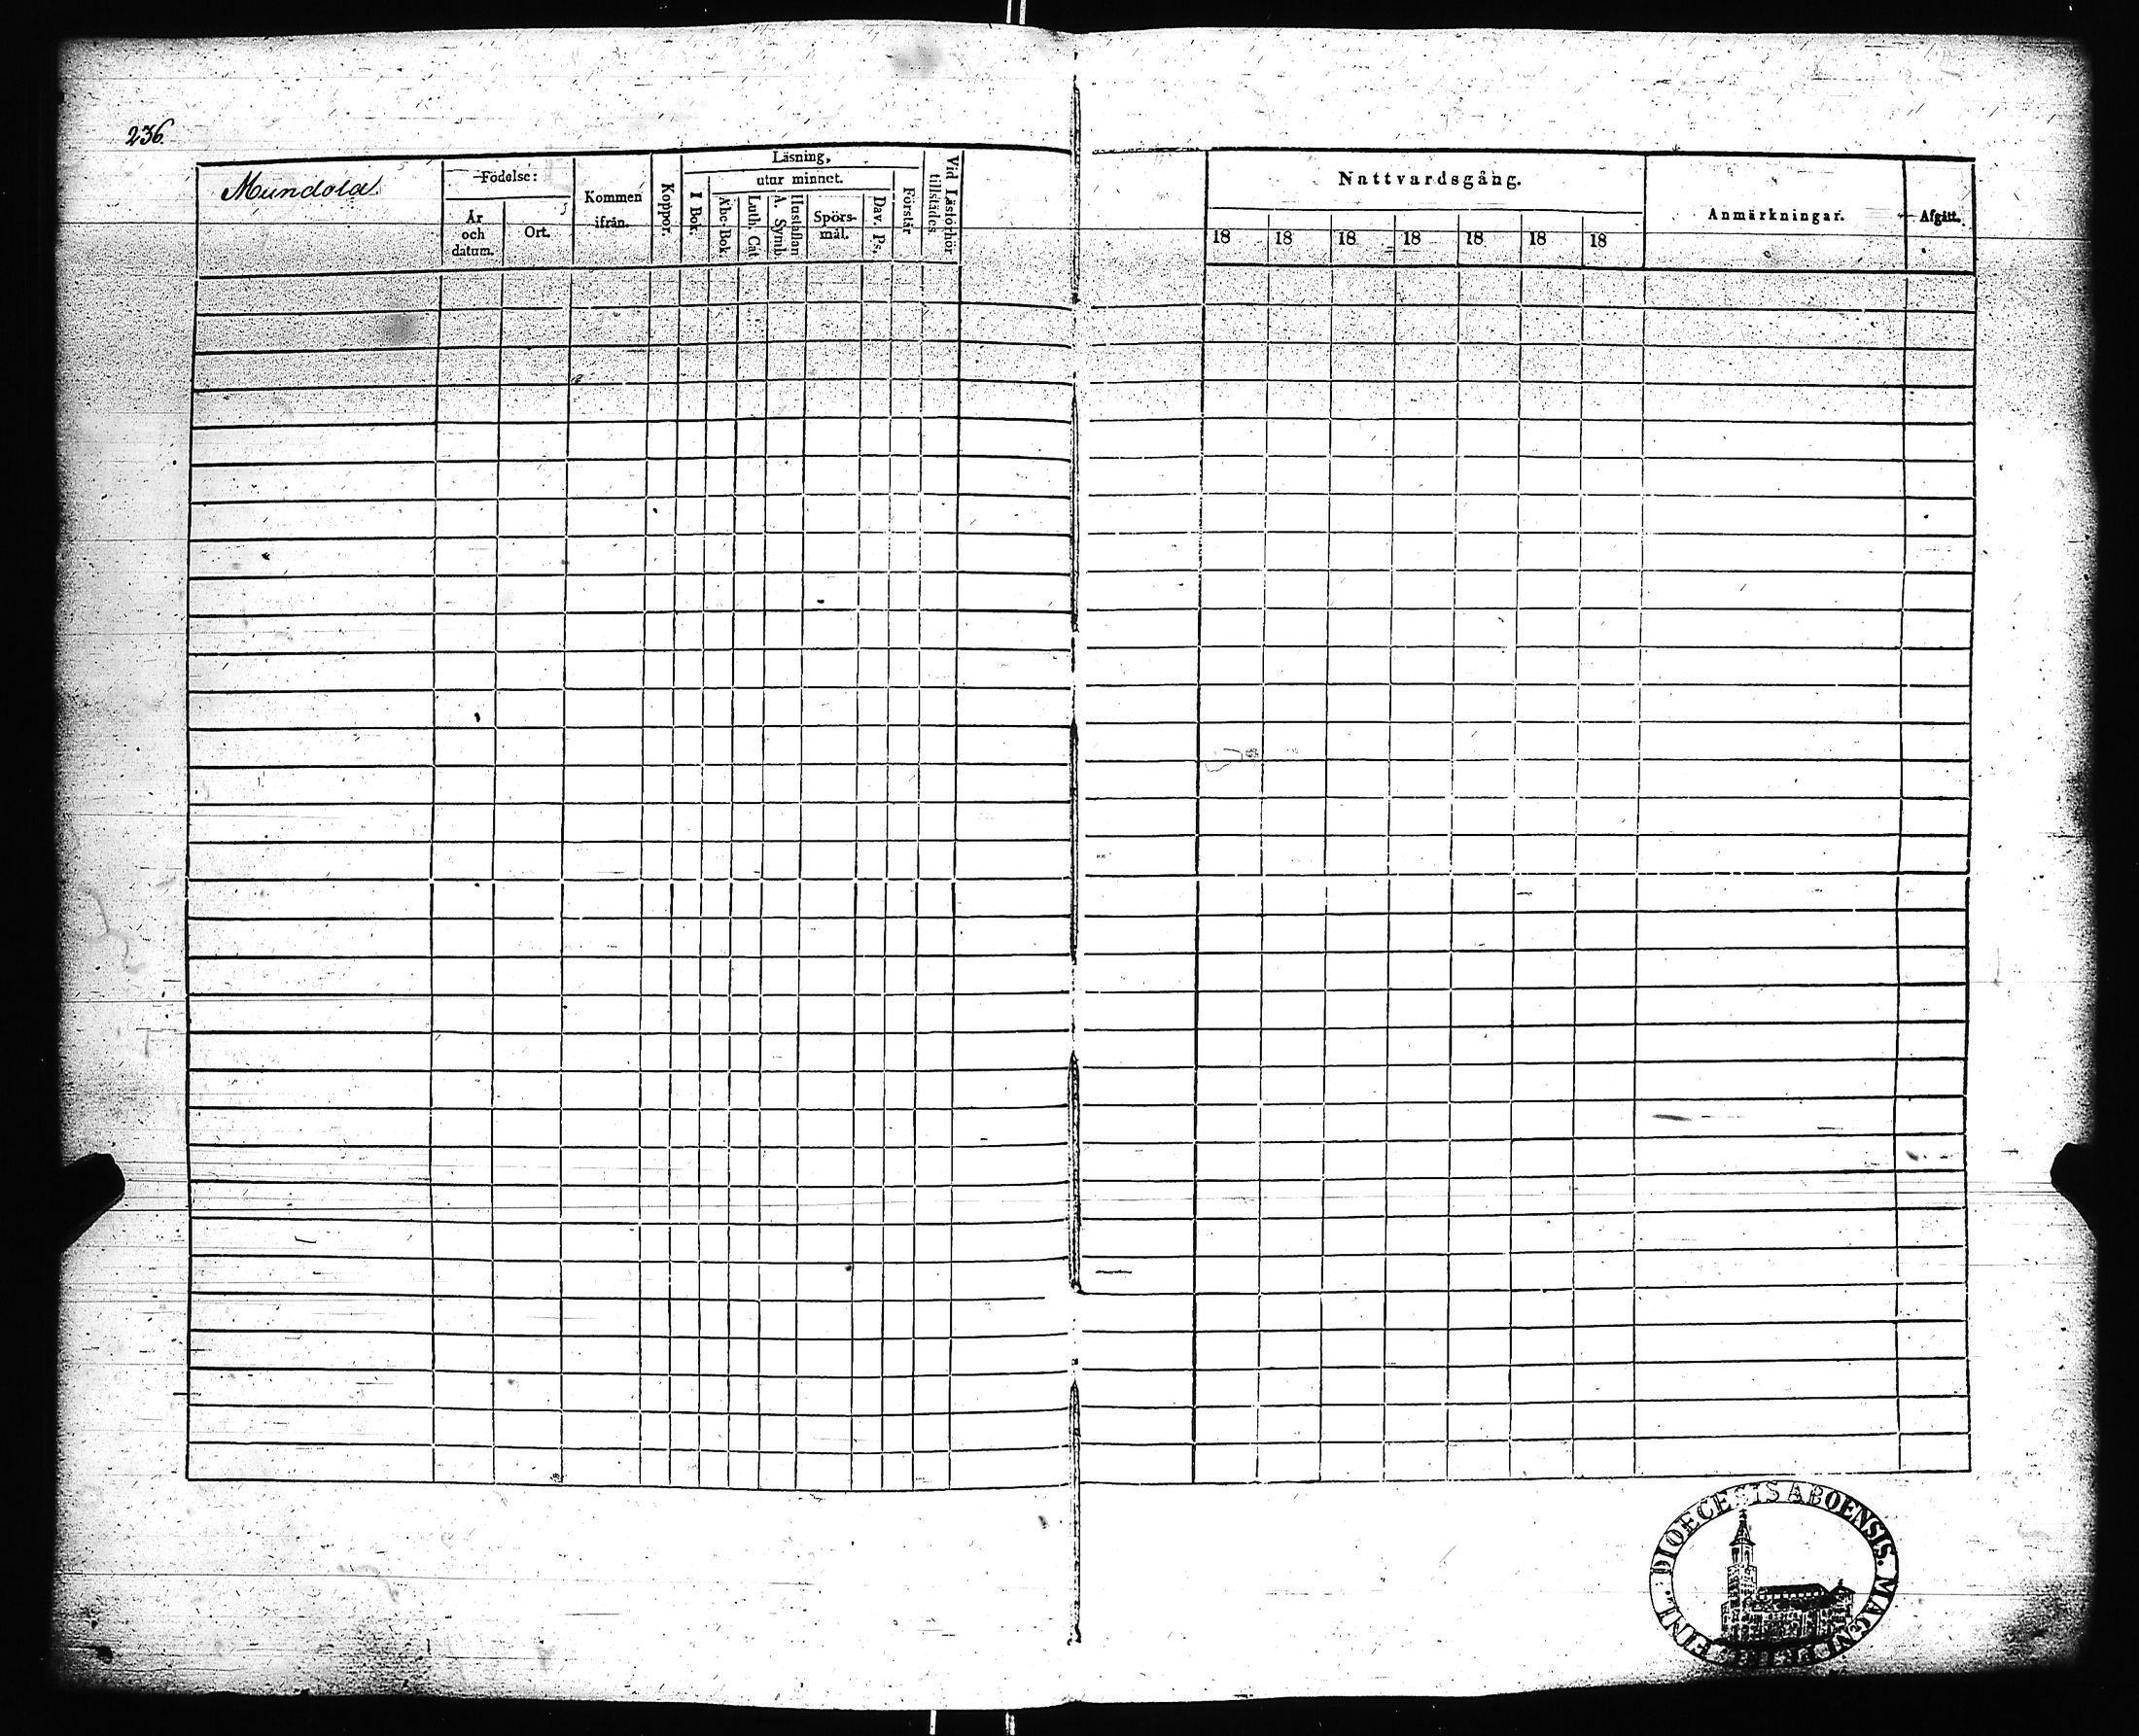 236.
Mundola
Födelse:
År och datum.
Ort.
Kommen ifrån.
Koppor.
Läsning,
I Bok.
utur minnet.
Abc-Bok.
Luth. Cat
A. Symb.
Hustaflan
Spörs-
mål.
Dav. Ps.
Förstår
Vid Läsförhör
tillstädes.
Nattvardsgång.
18 18 18 18 18 18 18
Anmärkningar.
Afgått.
DIOECESIS ABOENSIS. MAGNI FINL.